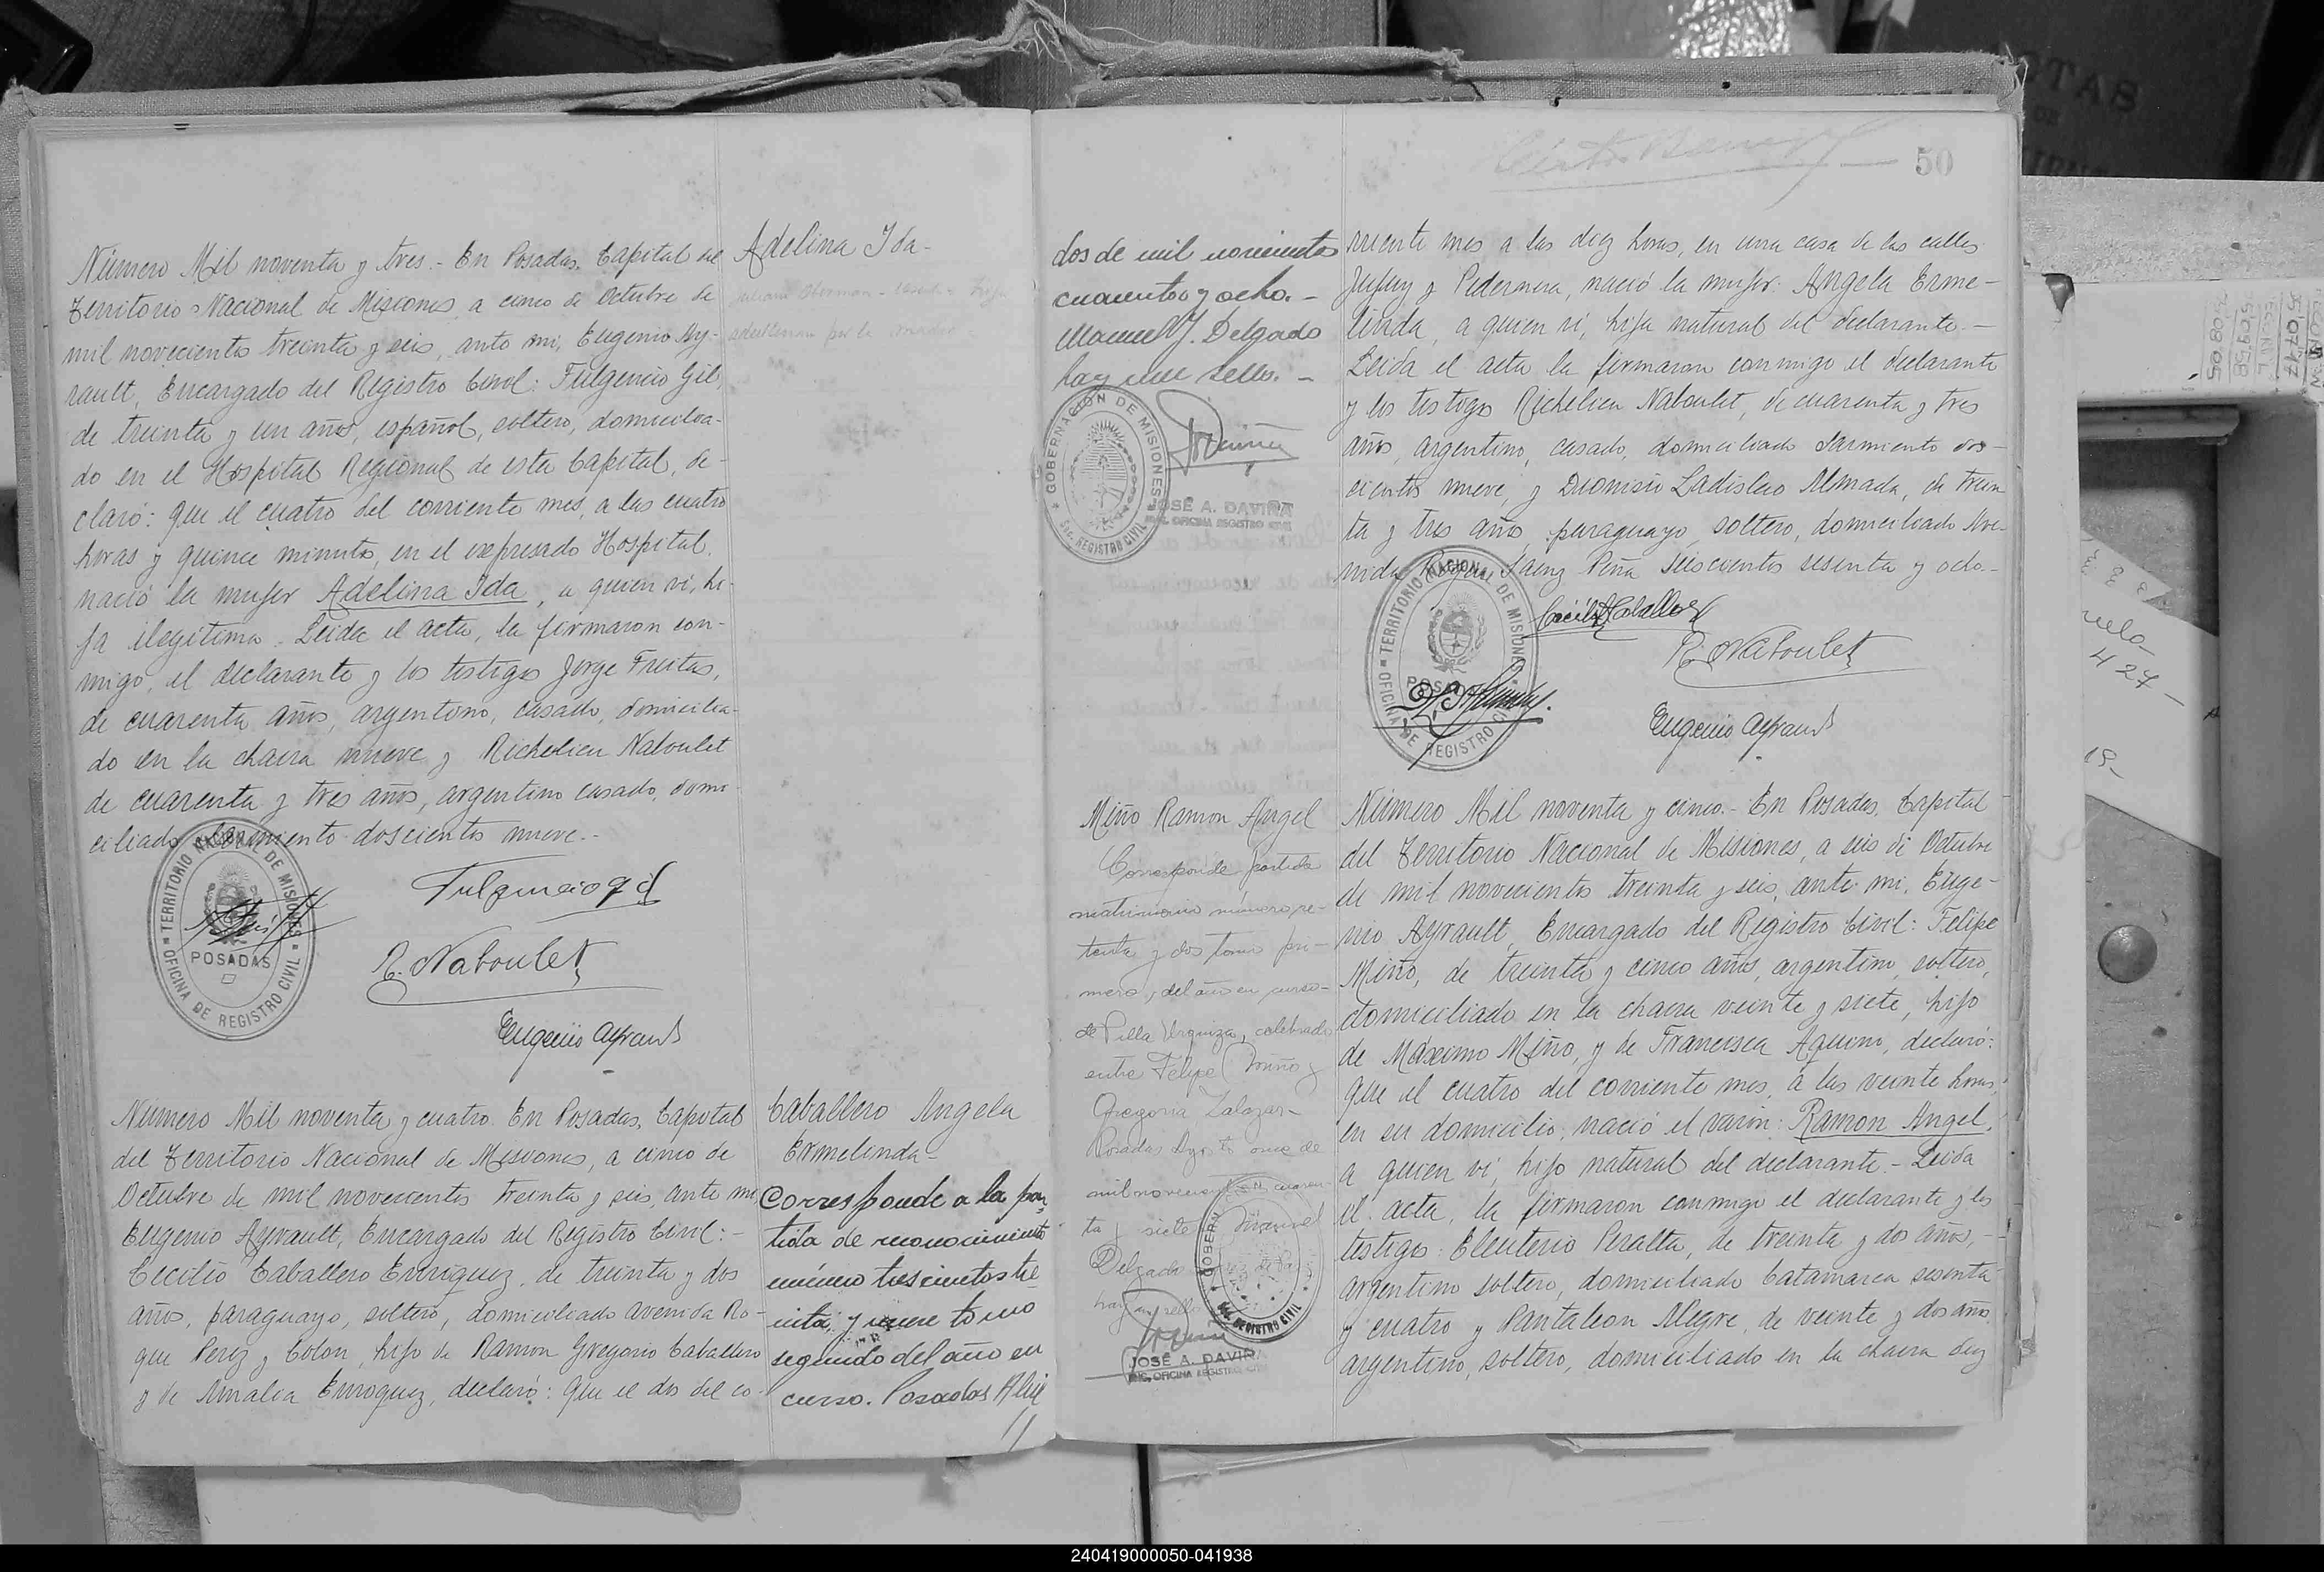 Número Mil noventa y tres.- En Posadas, Capital del
Territorio Nacional de Misiones, a cinco de Octubre de
mil novecientos treinta y seis, ante mi, Eugenio Ay-
rault, Encargado del Registro Civil: Fulgencio Gil,
de treinta y un años, español, soltero, domicilia-
do en el Hospital Regional de esta Capital, de-
claró: que el cuatro del corriente mes, a las cuatro
horas y quince minutos, en el expresado Hospital,
nació la mujer Adelina Ida, a quien vi, hi-
ja ilegítima. Leida el acta, la firmaron con-
migo, el declarante y los testigos Jorge Freitas,
de cuarenta años, argentino, casado, domicilia-
do en la chacra nueve y Richelieu Naboulet
de cuarenta y tres años, argentino casado, domi-
ciliado Sarmiento doscientos nueve.-
Adelina Ida-
por la
TERRITORIO NACIONAL DE MISIONES
POSADAS
OFICINA DE REGISTRO CIVIL
Fulgencio Gil
R. Naboulet
Eugenio Ayrault
Número Mil noventa y cuatro. En Posadas, Capital
del Territorio Nacional de Misiones, a cinco de
Octubre de mil novecientos treinta y seis, ante mi
Eugenio Ayrault, Encargado del Registro Civil:-
Cecilio Caballero Enriquez, de treinta y dos
años, paraguayo, soltero, domiciliado avenida Ro-
que Perez y Colon, hijo de Ramon Gregorio Caballero
y de Amalia Enriquez, declaró: que el dos del co-
Caballero Angela
Ermelinda-
Corresponde a la par
tida de reconocimiento
número trescientos tre
inta y nueve tomo
segundo del año en
curso. Posadas Abril
//
50
dos de mil novecientos
cuarenta y ocho.-
Manuel J. Delgado
hay un sello.-
GOBERNACION DE MISIONES
SEC. REGISTRO CIVIL
JOSÉ A. DAVIÑA
ENC. OFICINA REGISTRO CIVIL
rriente mes a las diez horas, en una casa de las calles
Jujuy y Pedernera, nació la mujer: Angela Erme-
linda, a quien vi, hija natural del declarante.-
Leida el acta la firmaron conmigo el declarante
y los testigos Richelieu Naboulet, de cuarenta y tres
años, argentino, casado, domiciliado Sarmiento dos-
cientos nueve, y Dionisio Ladislao Almada, de trein
ta y tres años, paraguayo, soltero, domiciliado Ave-
nida Roque Saenz Peña seiscientos sesenta y ocho-
TERRITORIO NACIONAL DE MISIONES
POSADAS
OFICINA DE REGISTRO CIVIL
Cecilio Caballero
R. Naboulet
Eugenio Ayrault
Miño Ramon Angel
Corresponde partida
matrimonio número se-
tenta y dos tomo pri-
mero, del año en curso-
de Villa Urquiza, celebrado
entre Felipe Miño y
Gregoria Zalazar-
Posadas Agosto once de
mil novecientos cuaren-
ta y siete Manuel
Delgado
hay un sello
GOBERN
SEC. REGISTRO CIVIL
JOSÉ A. DAVIÑA
ENC. OFICINA REGISTRO CIVIL
Número Mil noventa y cinco.- En Posadas, Capital
del Territorio Nacional de Misiones, a seis de Octubre
de mil novecientos treinta y seis, ante mi, Euge-
nio Ayrault, Encargado del Registro Civil: Felipe
Miño, de treinta y cinco años, argentino, soltero,
domiciliado en la chacra veinte y siete, hijo
de Máximo Miño, y de Francisca Aquino, declaró:
que el cuatro del corriente mes, a las veinte horas,
en su domicilio, nació el varón: Ramon Angel,
a quien vi, hijo natural del declarante.- Leida
el acta, la firmaron conmigo el declarante y los
testigos: Eleuterio Peralta, de treinta y dos años,-
argentino soltero, domiciliado Catamarca sesenta
y cuatro y Pantaleon Alegre, de veinte y dos años,
argentino, soltero, domiciliado en la chacra diez
427
240419000050-041938